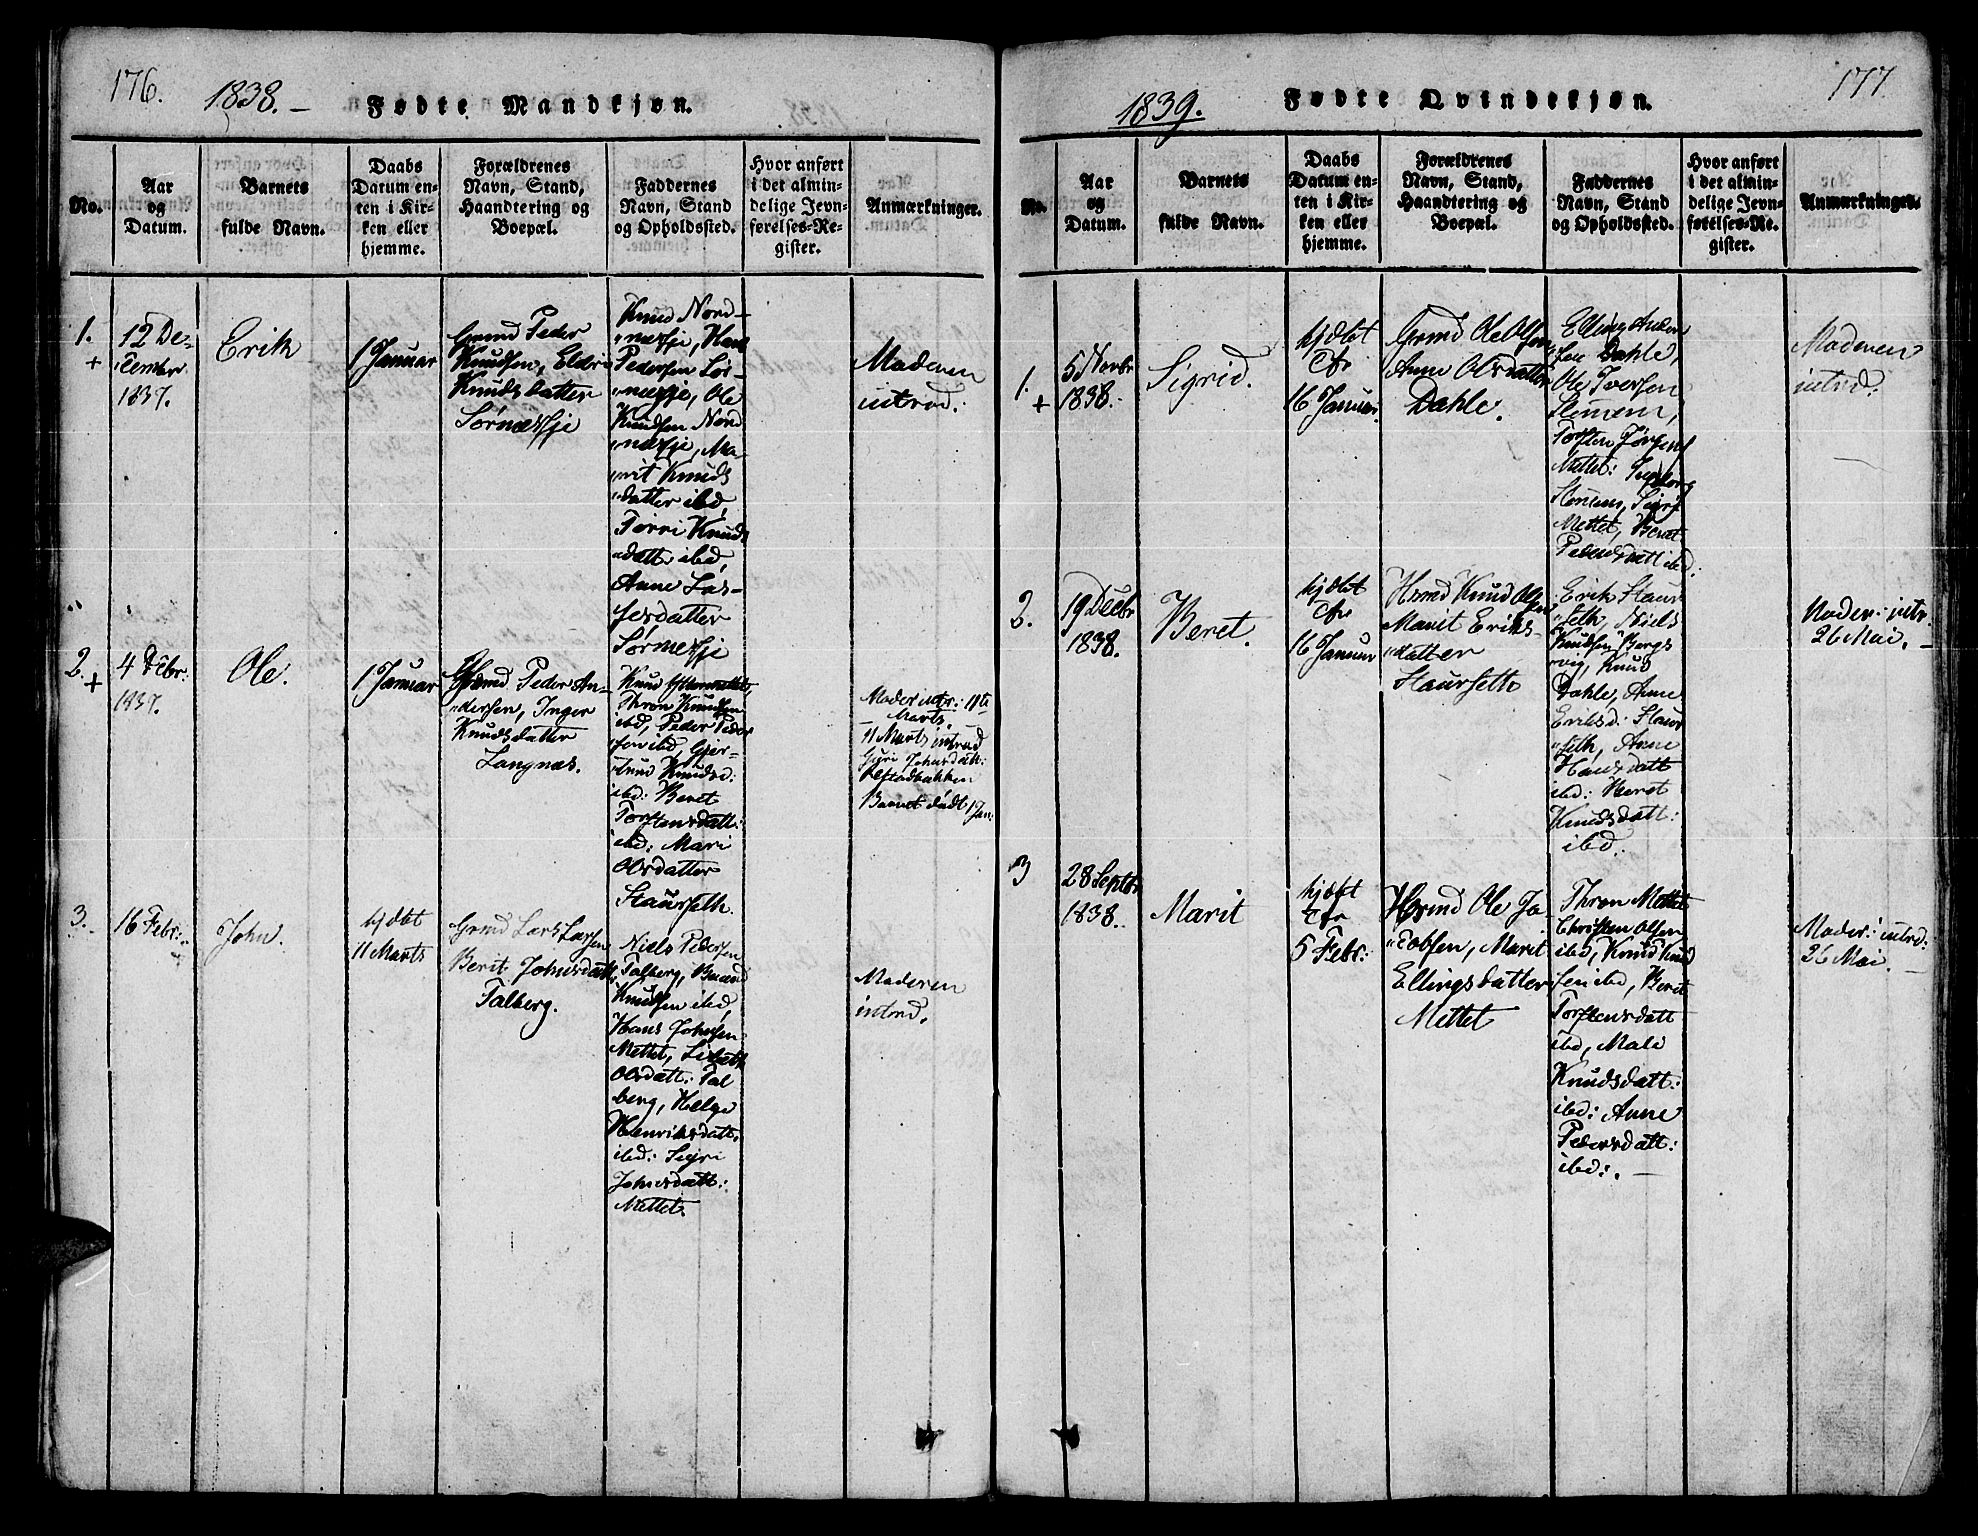 176.
1838.-
Fødte Mandkjøn.
No.
Aar
og
Datum.
Barnets
fulde Navn.
Daabs
Datum en-
ten i Kir-
ken eller
hjemme.
Forældrenes
Navn, Stand,
Haandtering og
Boepæl.
Faddernes
Navn, Stand
og Opholdssted.
Hvor anført
i det almin-
delige Jevn-
førelses-Re-
gister.
Anmærkninger.
1.
+
12 De-
cember
1837.
Erik
1 Januar
Grmd Peder
Knudsen, Eldri
Knudsdatter
Sørnæsje
Knud Nord-
næsje, Hans
Pedersen Sør-
næsje, Ole
Knudsen Nord
næsje, Ma-
rit Knuds
datter ibd,
Torri Knuds
datt: ibd,
Anne Las-
sesdatter
Sørnæsje
Moderen
introd:
2.
+
4 Debr:
1837.
Ole.
1 Januar
Grmd Peder An-
dersen, Inger
Knudsdatter
Langnæs.
Knud
Thron Knudsen
ibd, Peder Peder
sen ibd,
Knudsd:
ibd: Beret
Torstensdatt:
ibd: Mari
Olsdatter
Staurseth.
Moder intr: 11te
Marts.
11 Marts introd
Siri Johnsdatt:
Barnet dødt 1 Jan:
3.
16 Febr:
John.
hjdbt
11 Marts
Grmd Lars Larsen
Berit Johnsdatt,
Talberg.
Niels Pedersen
Talberg,
Knudsen ibd,
Hans Johnsen
Mettet, Lisbeth
Olsdatt: Tal
berg, Helge
Henriksdatt,
ibd: Sigri
Johnsdatt:
Mettet.
Moderen
introd.
177
1839.
Fødte Qvindekjøn.
No.
Aar
og
Datum.
Barnets
fulde Navn.
Daabs
Datum en-
ten i Kir-
ken eller
hjemme.
Forældrenes
Navn, Stand,
Haandtering og
Boepæl.
Faddernes
Navn, Stand
og Opholdssted.
Hvor anført
i det almin-
delige Jevn-
førelses-Re-
gister.
Anmærkninger.
1.
+
5 Novbr
1838.
Sigrid.
hjdbt
16 Januar
Grmd Ole Olsen,
Anne Olsdatter
Dahle.
Elling Ander
sen Dahle,
Ole Iversen
Torsten Jørgens
Mettet: Ingborg
Mettet, Beret
Pedersdatt ibd:
Moderen
introd:
2.
19 Decbr
1838.
Beret.
hjdbt
16 Januar
Hsmd Knud Olsen,
Marit Eriks-
datter
Staurseth
Erik Staur
seth, Niels
Knudsen Bergs
vig, Knud
Dahle, Anne
Eriksd: Staur
seth, Anne
Hansdatt
ibd: Beret
Knudsdatt:
ibd.
Moder: intr:
26 Mai.-
3
28 Septbr
1838.
Marit
hjdbt
5 Febr:
Hsmd Ole Ja-
cobsen, Marit
Ellingsdatter
Mettet
Thron Mettet
Christen Olsen
ibd, Knud Knud
sen ibd, Beret
Torstensdatt
ibd, Mali
Knudsdatt:
ibd: Anne
Pedersdatt:
ibd:.-
Moder: introd:
26 Mai.-